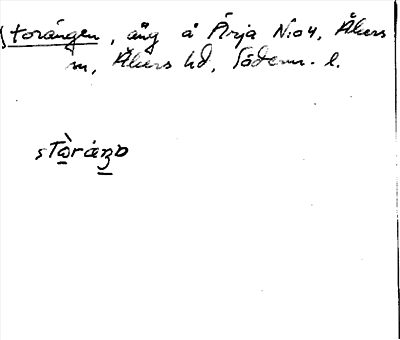 Storängen, äng å Ärja N:o 4, Åkers
sn, Åkers hd, Söderm. l.